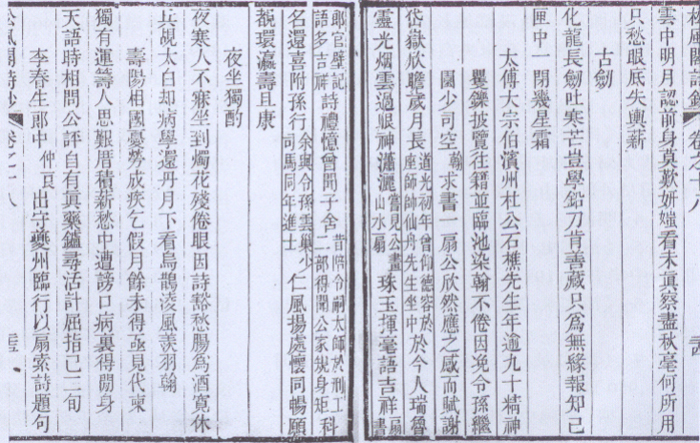 雲中明月認前身莫歎妍媸看未真察盡秋毫何所用
只愁眼底失輿薪
古劍
化龍長劍吐寒芒豈學鉛刀肯善藏只為無緣報知己
匣中一閉幾星霜
太傅大宗伯濱州杜公石樵先生年逾九十精神
矍鑠披覽往籍並臨池染翰不倦因浼令孫繼
園少司空翰求書一扇公欣然應之感而賦謝
岱嶽欣瞻歲月長道光初年曾仰德容於座師帥仙舟先生坐中於今人瑞魯
靈光烟雲過眼神瀟灑嘗見公畫山水扇珠玉揮毫語吉祥扇書
郎官壁記語多吉祥詩禮憶曾聞子舍昔陪令嗣太師於刑工二部得聞公家規身矩科
名還喜附孫行余與令孫雲巢少司馬同年進士仁風揚處懷同暢願
祝環瀛壽且康
夜坐獨酌
夜寒人不寐坐到燭花殘倦眼因詩豁愁腸為酒寬休
兵覘太白却病學還丹月下看烏鵲凌風羨羽翰
壽陽相國憂勞成疾乞假月餘未得亟見代柬
獨有運籌人思艱厝積薪愁中遭謗口病裏得閒身
天語時相問公評自有真藥鑪尋活計屈指已三旬
李春生郎中仲良出守夔州臨行以扇索詩題句
卷之十八